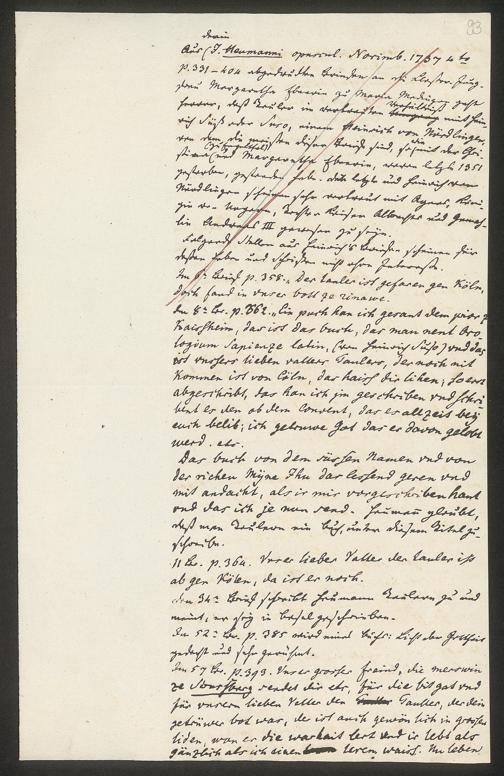 93
darin
Aus (J. Heumanni opuscul. Norimb. 1737 4to
p. 331–404 abgedruckten Briefen an die Klosterjung-
frau Margaretha Ebnerin zu Maria Medingen geht
hervor, daß Tauler in vertrauten Verhältniß mit Hein-
rich Süß oder Suso, einem Heinrich von Nördlingen,
von dem die meisten dieser Briefe sind, so mit der Chri-
stina und Margaretha Ebnerin, wovon letzte 1351
gestorben, gestanden habe. letzte und Heinrich von
Nördlingen scheinen sehr vertraut mit Agnes, Köni-
gin v. Ungarn, Tochter Kaisers Albrechts und Gemah-
lin Andreas III gewesen zu sein.
Folgende Stellen aus Heinrich's Briefen scheinen für
dessen Leben und Schriften nicht ohne Interesse.
Im Brief p. 358. „Der Tauler ist gefaren gen Köln,
doch fand in unser bott ze rinawe.
Im 8t. Br. p. 362. „Ein puch han ich gesant dem prior z
Kaissheim, das ist das buch, das man nent Oro-
logium Sapienze latin, (von Heinrich Suso) und das
ist unssers lieben vatters Taulers, der noch nit
kommen ist von Cöln, das haiss dir lihen; so erst
abgeschribt, das han ich jm geschriben und schri-
bent es den ob dem Convent, das es allzeit bey
euch belib; ich getruwe Got das er davon gelobt
werd. etc.
Das buch von dem süssen Namen und von
der richen Myne Jhu das lessend geren und
mit andacht, als ir mir vorgeschriben hant
und das ich je man send. Heumann glaubt,
daß man Taulern ein Buch unter diesem Titel zu-
schreibe.
11 Br. p. 364. Unser lieber Vatter der Tauler ist
ab gen Köln, da ist er noch.
Den 34t. Brief schreibt Heumann Taulern zu und
meint, er sey in Basel geschrieben.
Im 52t. Br. p. 385 wird eines Buchs: Licht der Gottheit
gedacht und sehr gerühmt.
Im 57 Br. p. 393. Unser grosser fraind, die merswin
ze Strassburg sendet dir etc. für die bit gat und
für unsern lieben Vatter den Tauler, der dein
getrüwer bot was, der ist auch gewönlich in grossem
liden, wan er die warheit lert und ir lebt als
gänzlich als ich einen lerern waiss. Im leben,